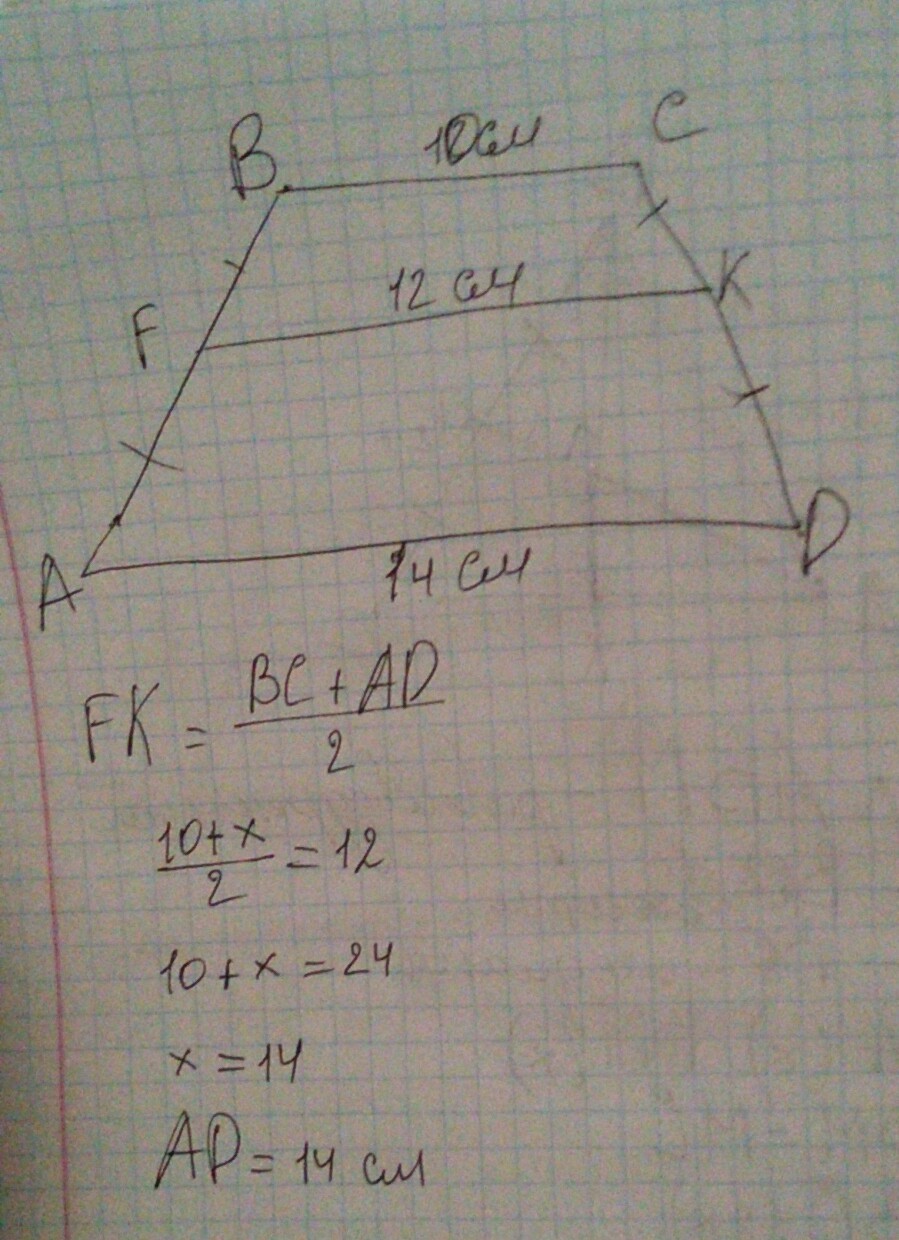 B 10см C
F 12 см K
A 14 см D
FK = \frac{BC + AD}{2}
\frac{10+x}{2} = 12
10 + x = 24
x = 14
AD = 14 см